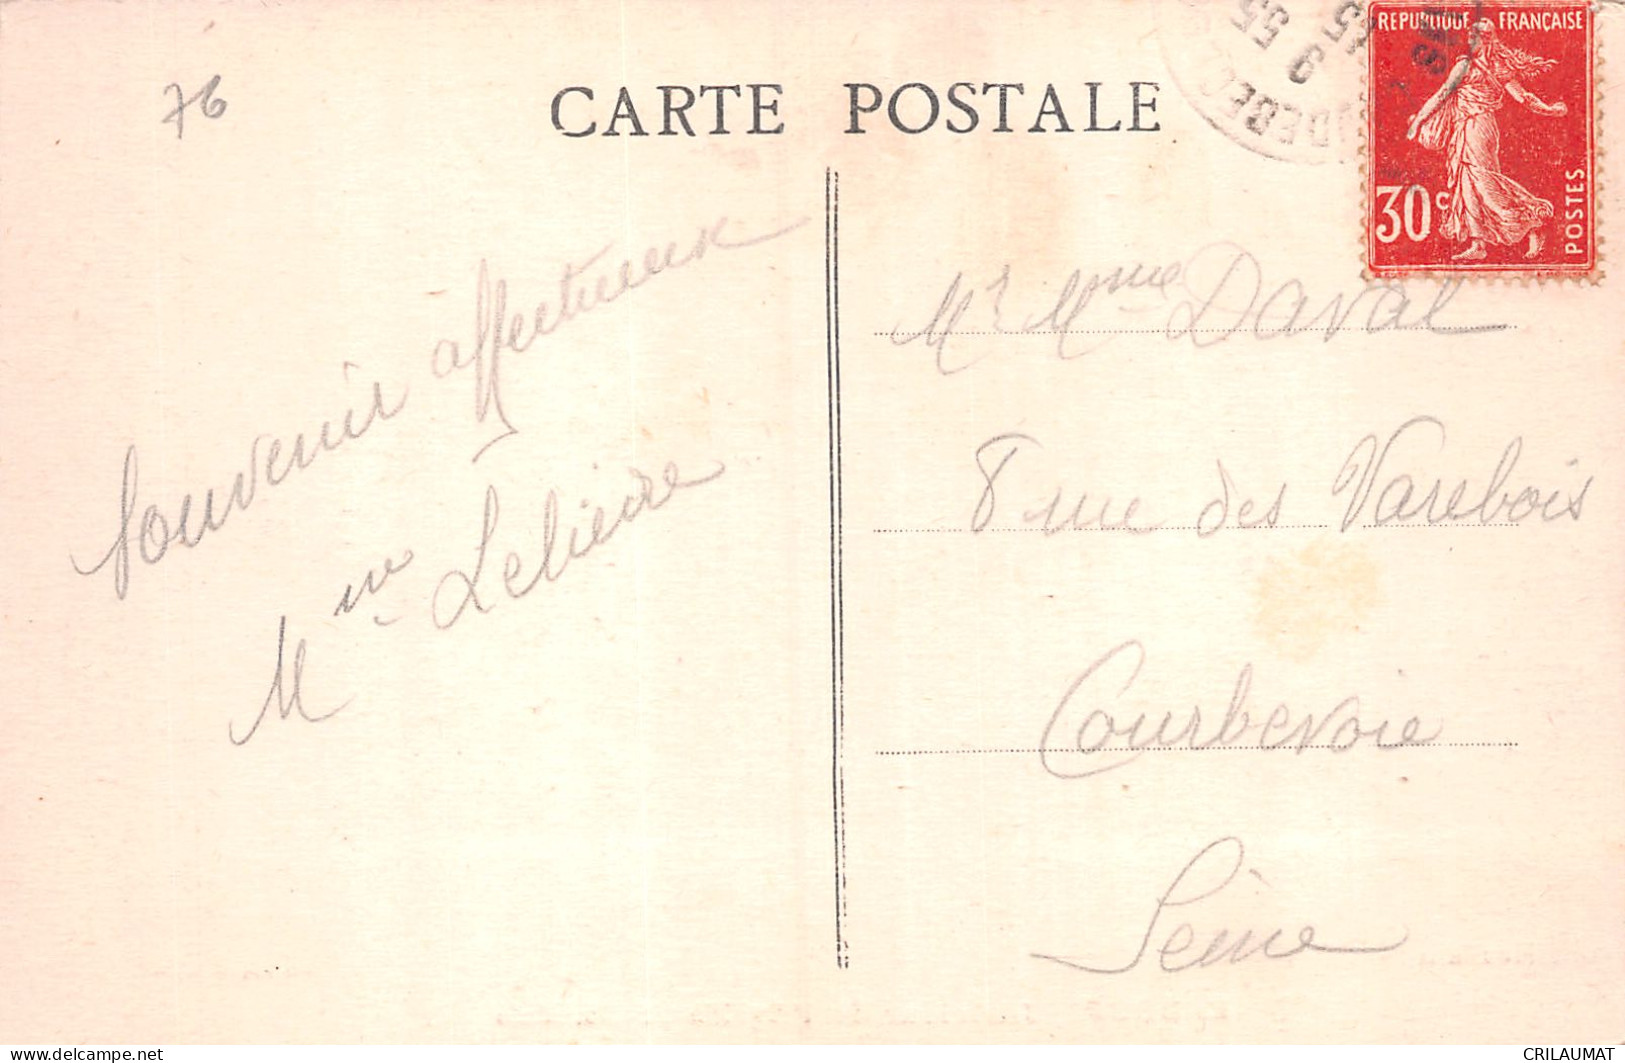 76
CARTE POSTALE
REPUBLIQUE FRANÇAISE
30c
POSTES
Souvenir affectueux
Mme Lelievre
Mr Mme Daval
8 rue des Varebois
Courbevoie
Seine
www.delcampe.net
CRILAUMAT